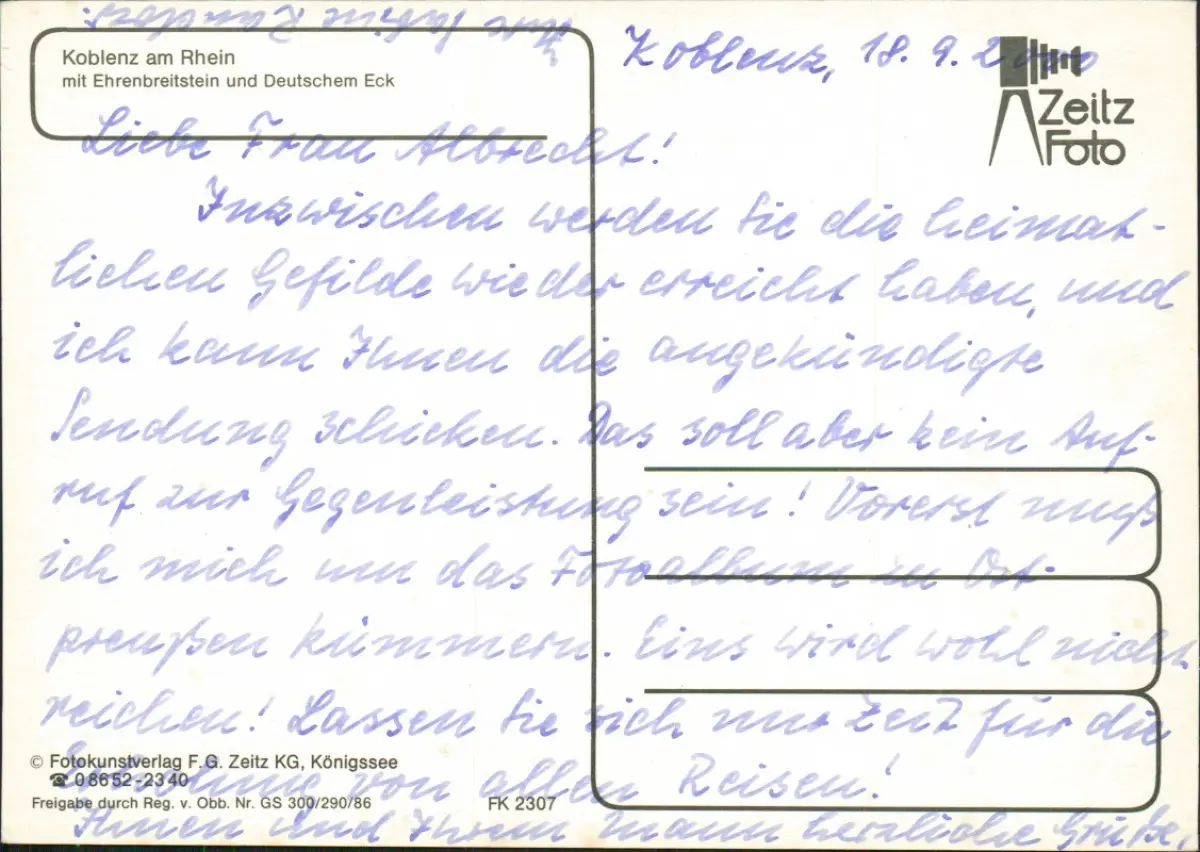 Koblenz am Rhein
mit Ehrenbreitstein und Deutschem Eck
Koblenz, 18. 9. 2000
Zeitz
Foto
Liebe Frau Albrecht!
Inzwischen werden Sie die heimat-
lichen Gefilde wieder erreicht haben, und
ich kann Ihnen die angekündigte
Sendung schicken. Das soll aber kein Auf-
ruf zur Gegenleistung sein! Vorerst muß
ich mich um das Fotoalbum zu Ost-
preußen kümmern. Eins wird wohl nicht
reichen! Lassen Sie sich nur Zeit für die
von allen Reisen!
Ihnen und Ihrem Mann herzliche Grüße,
Ihre
© Fotokunstverlag F.G. Zeitz KG, Königssee
☎ 08652-2340
Freigabe durch Reg. v. Obb. Nr. GS 300/290/86
FK 2307